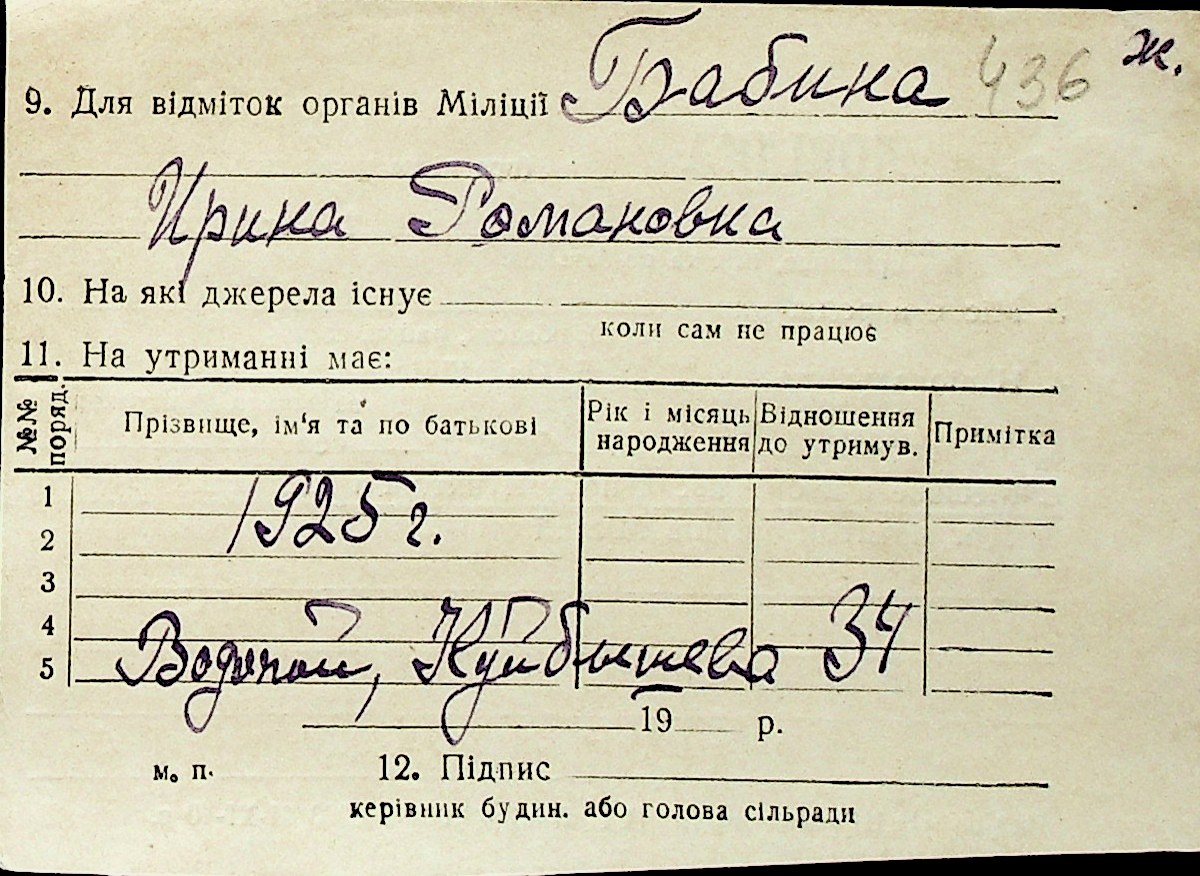 ж.
9. Для відміток органів Міліції Бабина 436
Ирина Романовна
10. На які джерела існує
коли сам не працює
11. На утриманні має:
№№ поряд. Прізвище, ім'я та по батькові Рік і місяць народження Відношення до утримув. Примітка
1
1925 г.
2
3
4
5 Водопой, Куйбышева 34
19 р.
м. п. 12. Підпис
керівник будин. або голова сільради